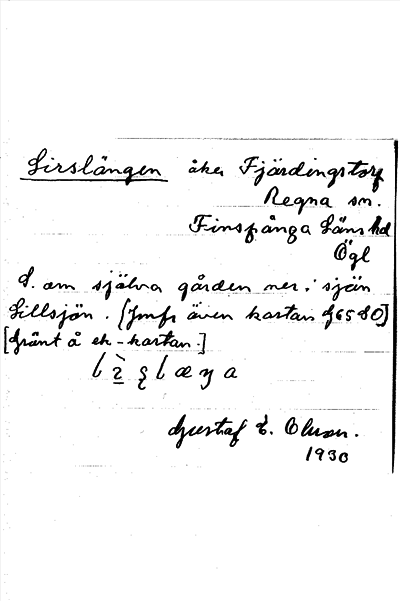 Lirslängen åker Fjärdingstorp
Regna sn.
Finspånga Läns hd
Ögl
S. om själva gården ner i sjön
Lillsjön. (Jmfr även kartan
[Gränt å ek-kartan.]
Gustaf E. Olsson.
1930